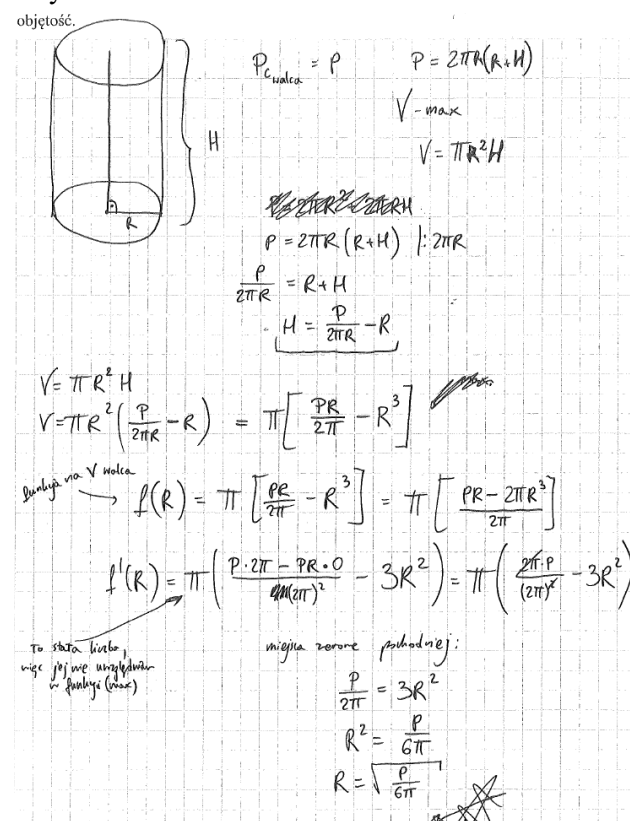 objętość.
P_c walca = P    P = 2πR(R+H)
V - max
H
V = πR²H
R
P = 2πR (R+H) |: 2πR
P/2πR = R+H
H = P/2πR - R
V = πR² H
V = πR² (P/2πR - R) = π[PR/2π - R³]
funkcja na V walca
f(R) = π [PR/2π - R³] = π [PR - 2πR³/2π]
f'(R) = π (P·2π - PR·0/(2π)² - 3R²) = π (2π·P/(2π)² - 3R²)
To stała liczba,
więc jej nie uwzględniam
w funkcji (max)
miejsca zerowe pochodnej:
P/2π = 3R²
R² = P/6π
R = √P/6π